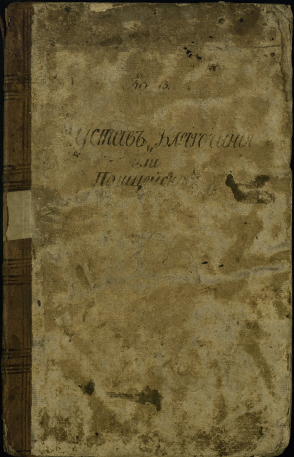 Уставъ Благочинія
или
Полицейской